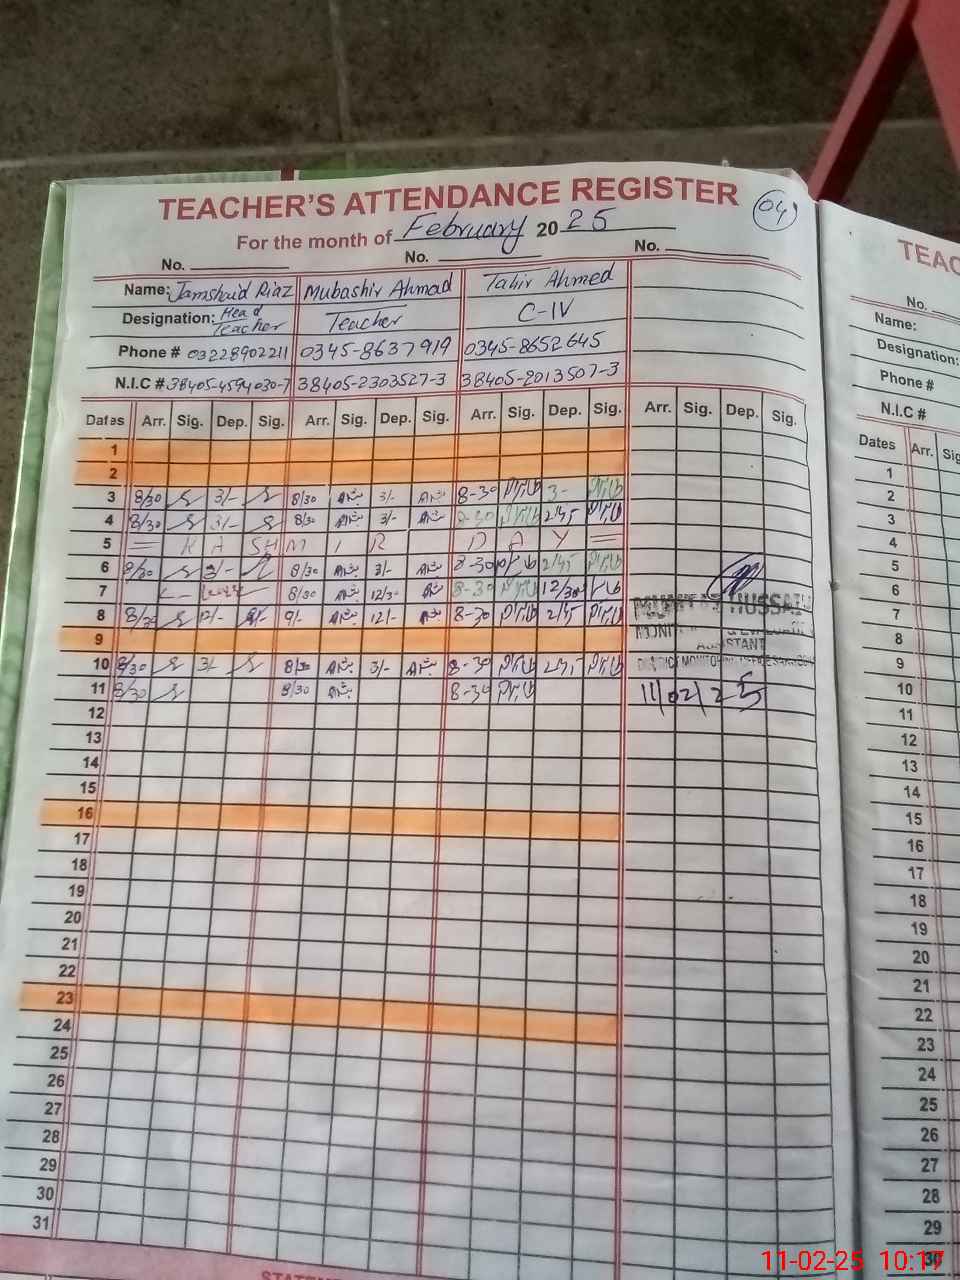 TEACHER'S ATTENDANCE REGISTER
04
For the month of February 2025
No. No. No.
Name: Jamshaid Riaz Mubashir Ahmad Tahir Ahmed
Designation: Head Teacher Teacher C-IV
Phone # 03228902211 0345-8637919 0345-8652645
N.I.C # 38405-4594030-7 38405-2303527-3 38405-2013507-3
Dates Arr. Sig. Dep. Sig. Arr. Sig. Dep. Sig. Arr. Sig. Dep. Sig. Arr. Sig. Dep. Sig.
1
2
3 8/30 3/- 8/30 3/- 8-30 3-
4 8/30 3/- 8/30 3/- 8-30 2/45
5 = KASHMIR DAY =
6 8/30 3/- 8/30 3/- 8-30 2/45
7 8/30 12/30 8-30 12/30
8 8/30 12/- 9/- 12/- 8-30 2/45
9
10 8/30 3/- 8/30 3/- 8-30 2/45
11 8/30 8/30 8-30
12
13
14
15
16
17
18
19
20
21
22
23
24
25
26
27
28
29
30
31
HUSSAIN
ASSISTANT
DISTRICT MONITORING OFFICE
11/02/25
TEAC
No.
Name:
Designation:
Phone #
N.I.C #
Dates Arr. Sig
1
2
3
4
5
6
7
8
9
10
11
12
13
14
15
16
17
18
19
20
21
22
23
24
25
26
27
28
29
30
11-02-25 10:17